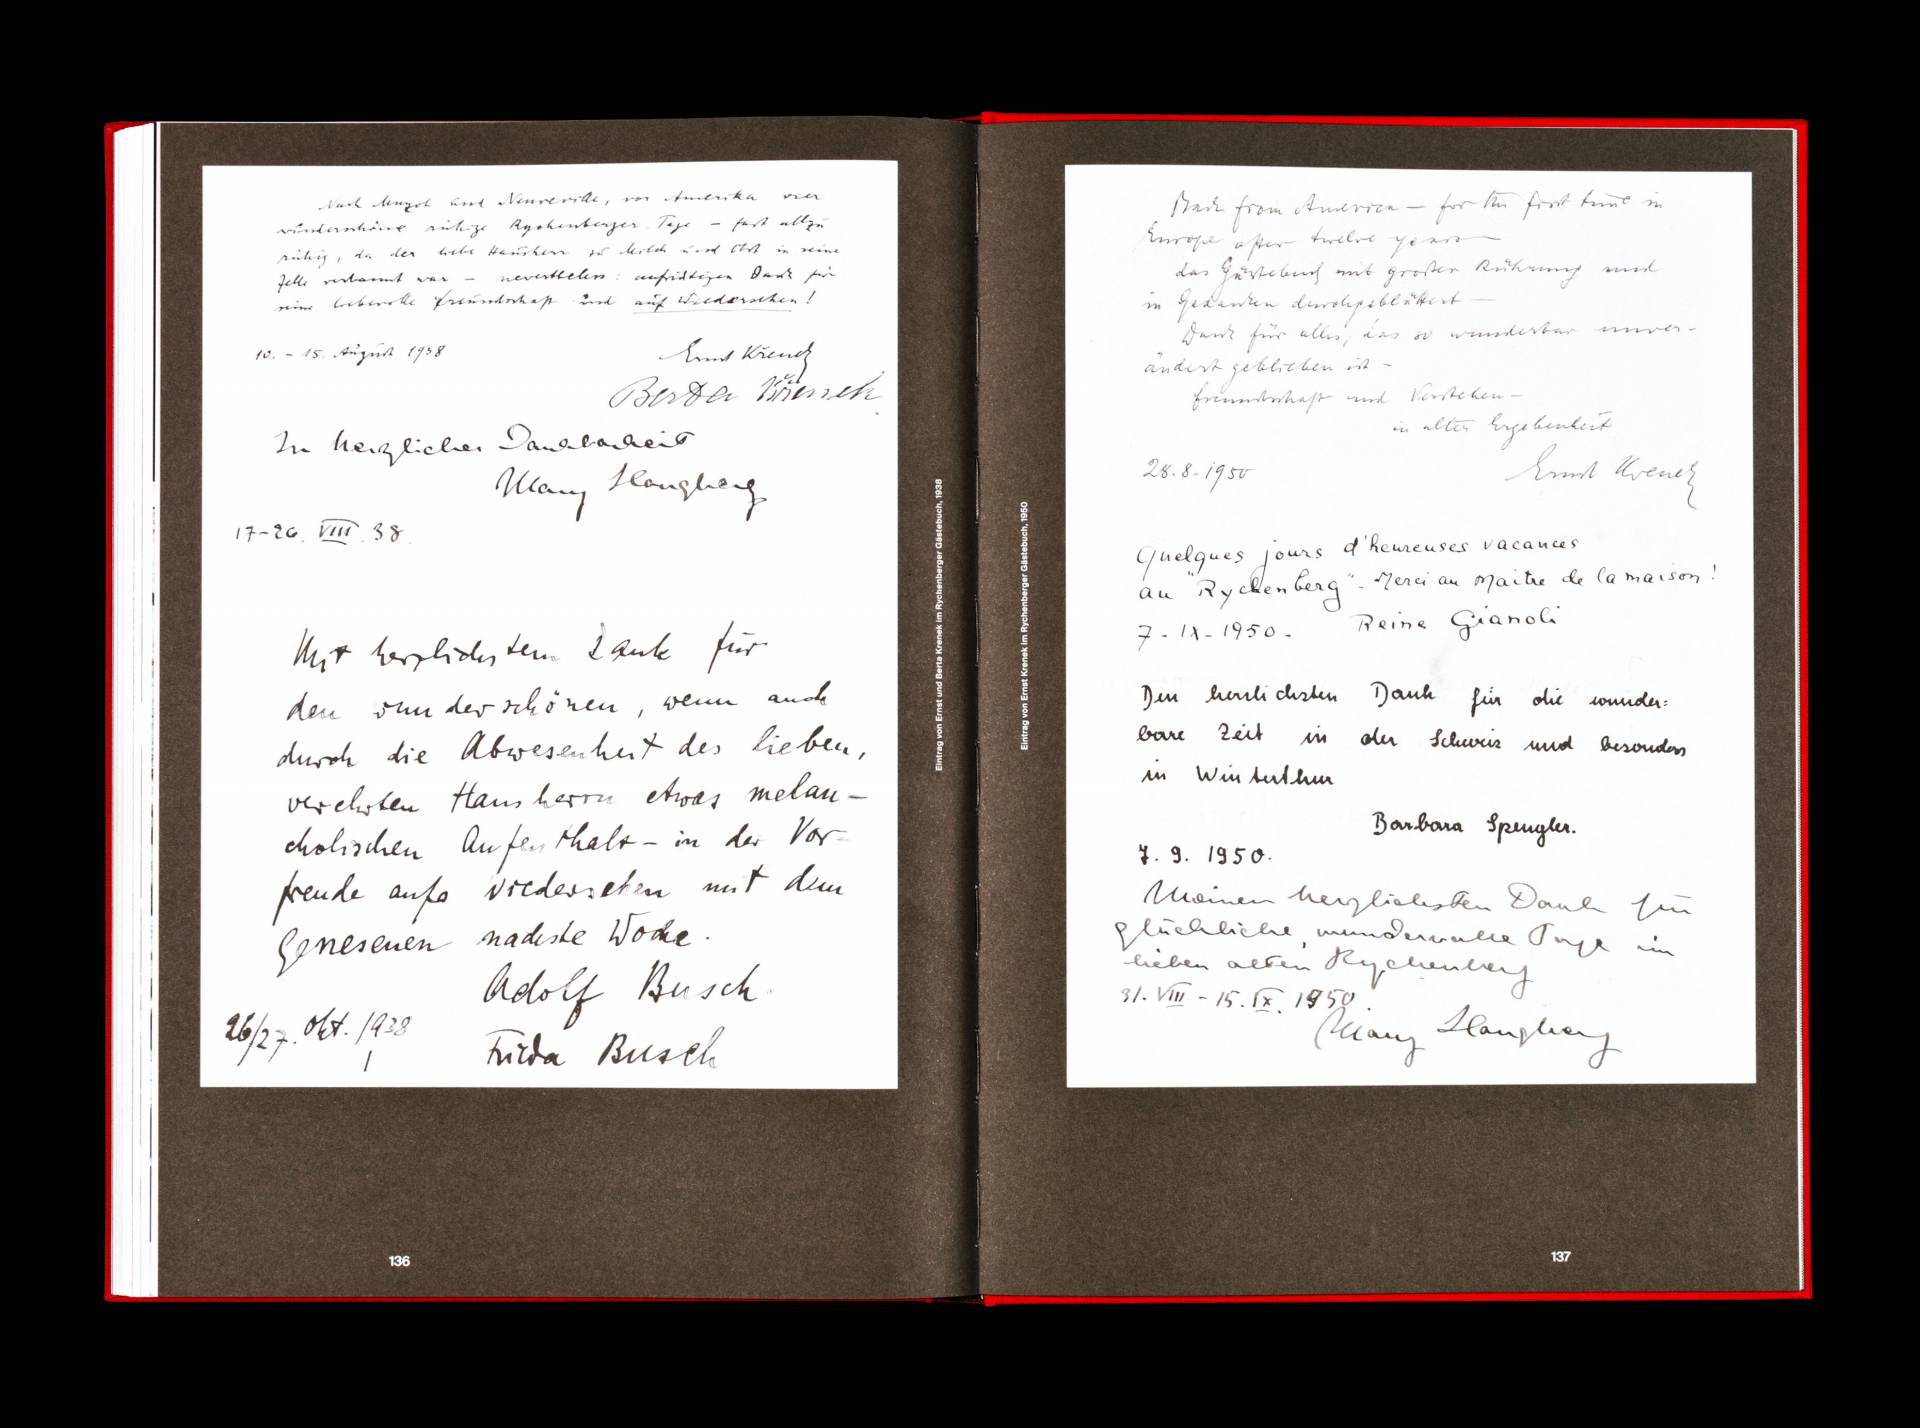 Nach Muzot und Neuveville, vor Amerika vier
wunderschöne ruhige Rychenberger Tage – fast allzu
ruhig, da der liebe Hausherr zu Milch und Obst in seine
Zelle verbannt war – nevertheless: aufrichtigen Dank für
seine liebevolle Freundschaft und auf Wiedersehen!
10. – 15. August 1938
Ernst Krenek
Berta Krenek
In herzlicher Dankbarkeit
17–26. VIII. 38.
Mit herzlichstem Dank für
den wunderschönen, wenn auch
durch die Abwesenheit des lieben,
verehrten Hausherrn etwas melan–
cholischen Aufenthalt – in der Vor–
freude aufs Wiedersehen mit dem
Genesenen nächste Woche.
Adolf Busch.
26/27. Okt. 1938
Frieda Busch
Eintrag von Ernst und Berta Krenek im Rychenberger Gästebuch, 1938
136
Eintrag von Ernst Krenek im Rychenberger Gästebuch, 1950
Back from America – for the first time in
Europe after twelve years –
das Gästebuch mit großer Rührung und
in Gedanken durchgeblättert –
Dank für alles, das so wunderbar unver–
ändert geblieben ist –
Freundschaft und Verstehen –
in alter Ergebenheit
28.8.1950
Ernst Krenek
Quelques jours d'heureuses vacances
au "Rychenberg" – Merci au Maître de la maison!
7 - IX - 1950 - Reine Gianoli
Den herzlichsten Dank für die wunder=
bare Zeit in der Schweiz und besonders
in Winterthur
Barbara Spengler.
7. 9. 1950.
Meinen herzlichsten Dank für
glückliche, wundervolle Tage im
lieben alten Rychenberg
31. VIII – 15. IX. 1950.
137